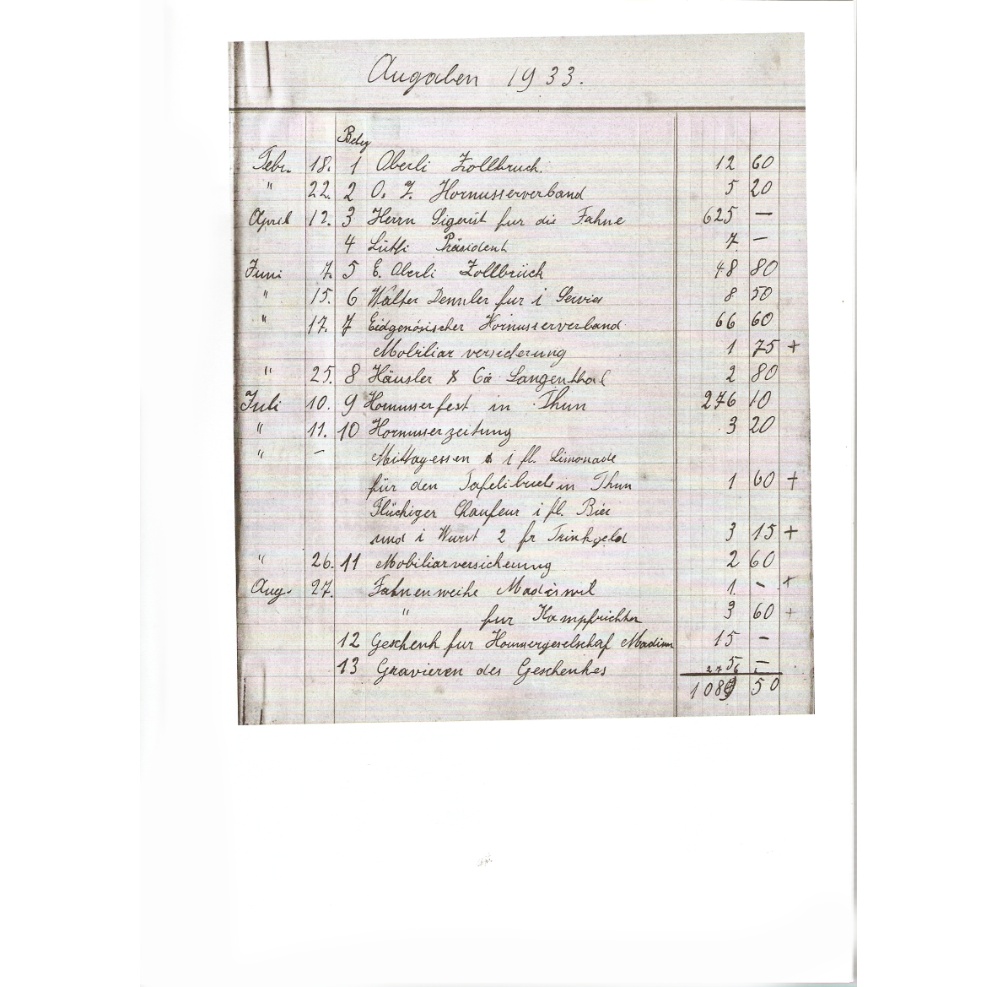 Ausgaben 1933.
Beleg
Febr. 18. 1 Oberli Zollbruck. 12 60
" 22. 2 O. Z. Hornusserverband 5 20
April 12. 3 Herrn Sigerist fur die Fahne 625 –
4 Lüthi Präsident 7 –
Juni 7. 5 E. Oberli Zollbrück 48 80
" 15. 6 Walter Dennler fur 1 Servier 8 50
" 17. 7 Eidgenösischer Hornusserverband 66 60
Mobiliar versicherung 1 75 +
" 25. 8 Häusler & Cie Langenthal 2 80
Juli 10. 9 Hornusserfest in Thun 276 10
" 11. 10 Hornusserzeitung 3 20
" – Mittagessen & 1 fl. Limonade
für den Tafelibueb in Thun 1 60 +
Flückiger Chaufeur 1 fl. Bier
und 1 Wurst 2 fr Trinkgeld 3 15 +
" 26. 11 Mobiliarversicherung 2 60
Aug. 27. Fahnenweihe Madiswil 1. – +
" fur Kampfrichter 3 60 +
12 Geschenk fur Hornusergeselschaf Madisw 15 –
13 Gravieren des Geschenkes 5 –
1089 50